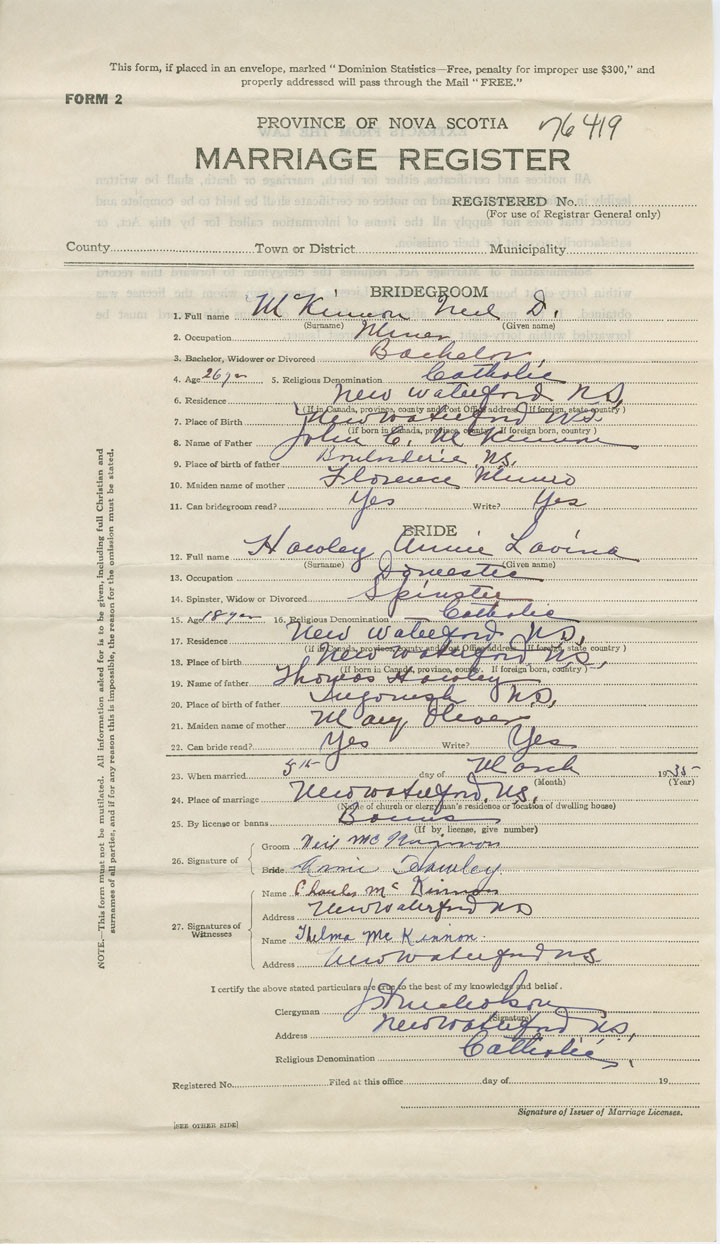 This form, if placed in an envelope, marked "Dominion Statistics—Free, penalty for improper use $300," and
properly addressed will pass through the Mail "FREE."
FORM 2
PROVINCE OF NOVA SCOTIA 76419
MARRIAGE REGISTER
REGISTERED No.
(For use of Registrar General only)
County Town or District Municipality
BRIDEGROOM
1. Full name McKinnon Neil D.
(Surname) (Given name)
2. Occupation Miner
3. Bachelor, Widower or Divorced Bachelor
4. Age 26 yrs 5. Religious Denomination Catholic
6. Residence New Waterford NS,
(If in Canada, province, county and Post Office address. If foreign, state country)
7. Place of Birth New Waterford NS.
(If born in Canada, province, country. If foreign born, country)
8. Name of Father John C. McKinnon
9. Place of birth of father Boularderie NS.
10. Maiden name of mother Florence Munro
11. Can bridegroom read? Yes Write? Yes
BRIDE
12. Full name Hawley Annie Lavina
(Surname) (Given name)
13. Occupation Domestic
14. Spinster, Widow or Divorced Spinster
15. Age 18 yrs 16. Religious Denomination Catholic
17. Residence New Waterford NS,
(If in Canada, province, county and Post Office address. If foreign, state country)
18. Place of birth New Waterford NS,
(If born in Canada, province, county. If foreign born, country)
19. Name of father Thomas Hawley
20. Place of birth of father Ingonish NS,
21. Maiden name of mother Mary Oliver
22. Can bride read? Yes Write? Yes
23. When married 5th day of March 1935
(Month) (Year)
24. Place of marriage New Waterford, NS.
(Name of church or clergyman's residence or location of dwelling house)
25. By license or banns Banns
(If by license, give number)
26. Signature of
Groom Neil McKinnon
Bride Annie Hawley
27. Signatures of Witnesses
Name Charles McKinnon
Address New Waterford NS
Name Thelma McKinnon.
Address New Waterford NS
I certify the above stated particulars are true to the best of my knowledge and belief.
Clergyman Nicholson
(Signature)
Address New Waterford NS,
Religious Denomination Catholic,
Registered No. Filed at this office day of 19
Signature of Issuer of Marriage Licenses.
[SEE OTHER SIDE]
NOTE.—This form must not be mutilated. All information asked for is to be given, including full Christian and
surnames of all parties, and if for any reason this is impossible, the reason for the omission must be stated.